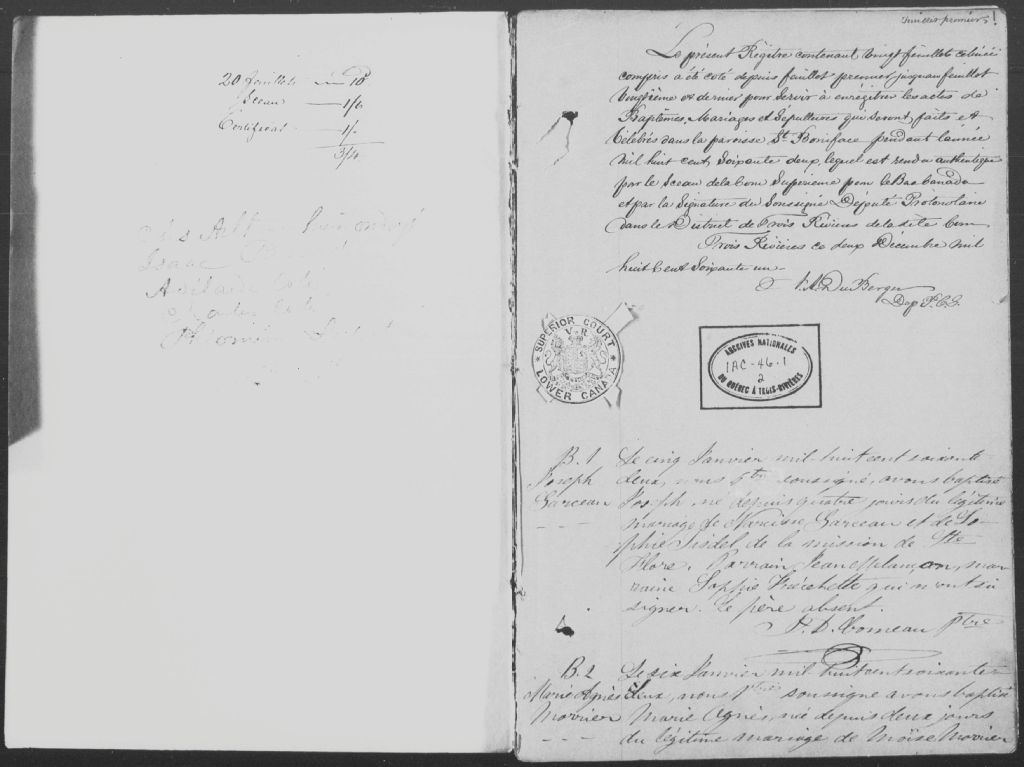 20 feuillets — 1s 10d
Sceau — 1/6
Certificat — 1/-
3/4
Isaac
Adélaide Coté
Coté
feuillet premier 1
Le présent Régitre contenant vingt feuillets celui ci
compris a été coté depuis feuillet premier jusqu'au feuillet
vingtième et dernier pour servir à enrégitrer les actes de
Baptêmes, Mariages et Sépultures qui seront faits et
célébrés dans la paroisse St. Boniface pendant l'année
mil huit cent soixante deux, lequel est rendu authentique
par le Sceau de la Cour Supérieure pour le Bas Canada
et par la Signature du Soussigné Député Protonotaire
dans le District de Trois Rivières de la dite Cour
Trois Rivières ce deux Décembre mil
huit Cent Soixante un
DuBerger
Dep P.C.S.
SUPERIOR COURT
V R
LOWER CANADA
ARCHIVES NATIONALES
1AC-46.1
2
DU QUÉBEC À TROIS-RIVIÈRES
B.1
Joseph
Garceau
Le cinq Janvier mil huit cent soixante-
deux, nous Ptre soussigné, avons baptisé
Joseph né depuis quatre jours du légitime
mariage de Narcisse Garceau et de So-
phie Lisdel de la mission de Ste
Flore. Parrain Jean Melançon, mar-
raine Sophie Fréchette qui n'ont su
signer. Le père absent.
Comeau Ptre
B.2
Marie Agnès
Morrier
Le six Janvier mil huit cent soixante-
deux, nous Ptre soussigné avons baptisé
Marie Agnès, née depuis deux jours
du légitime mariage de Moïse Morrier